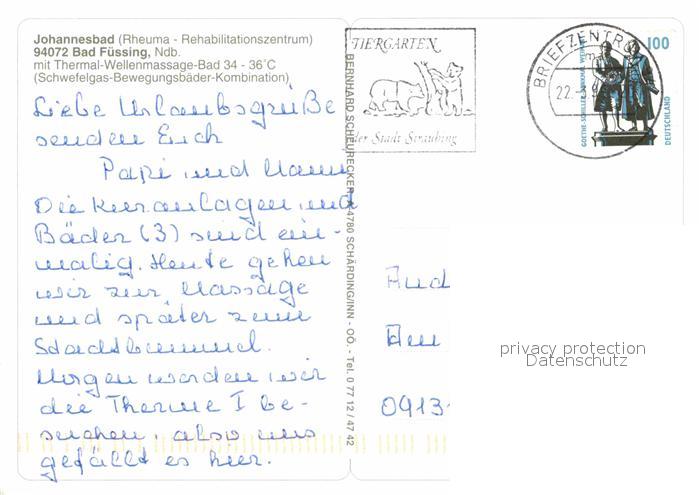 Johannesbad (Rheuma - Rehabilitationszentrum)
94072 Bad Füssing, Ndb.
mit Thermal-Wellenmassage-Bad 34 - 36°C
(Schwefelgas-Bewegungsbäder-Kombination)
Liebe Urlaubsgrüße
senden Euch
Papi und Mami
Die Kuranlagen und
Bäder (3) sind ein-
malig. Heute gehen
wir zur Massage
und später zum
Stadtbummel.
Morgen werden wir
die Therme I be-
suchen, also uns
gefällt es hier.
BERNHARD SCHEURECKER, A-4780 SCHÄRDING/INN - OÖ. - Tel. 0 77 12 / 47 42
TIERGARTEN
der Stadt Straubing
BRIEFZENTRUM
22.-3.9
100
GOETHE-SCHILLER-DENKMAL WEIMAR
DEUTSCHLAND
And
Am
0913
privacy protection
Datenschutz